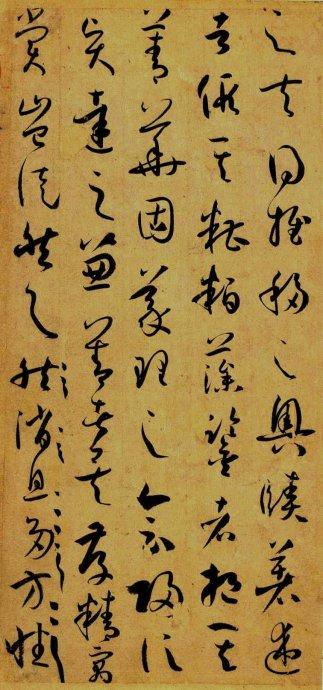 之夫得推移之奧賾著述
者假其糟粕藻鑒者挹其
菁華固義理之會歸信
賢達之兼善者矣存精寓
賞豈徒然与然消息多方性